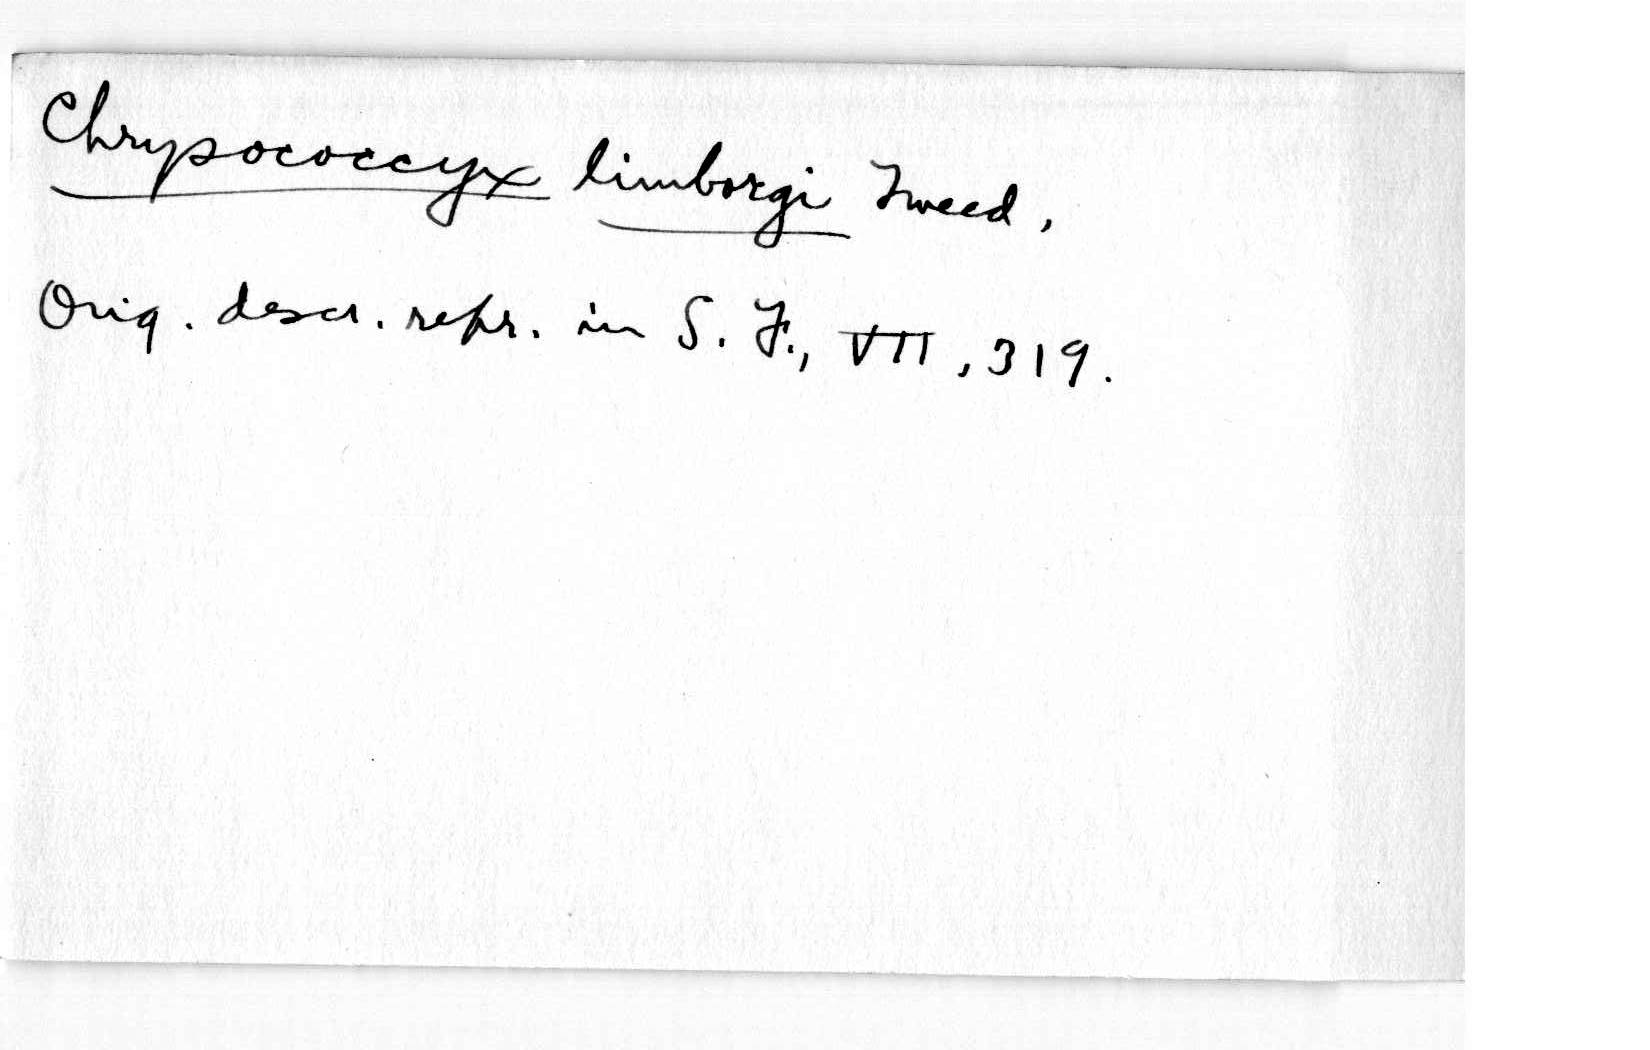 Chrysococcyx limborgi Tweed.
Orig. descr. repr. in S. F., VII, 319.